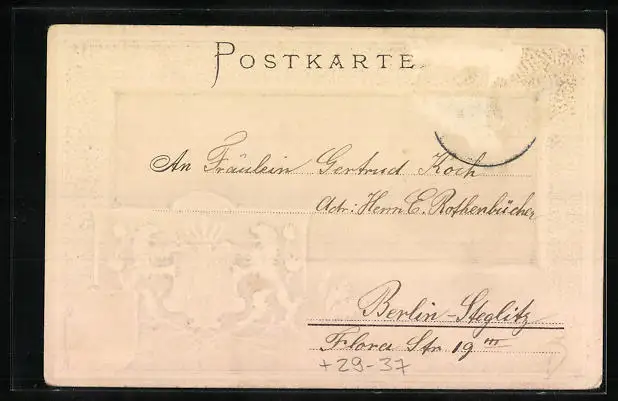 POSTKARTE
An Fräulein Gertrud Koch
Adr: Herrn E. Rothenbücher
Berlin-Steglitz
Flora Str. 19 III
+29-37